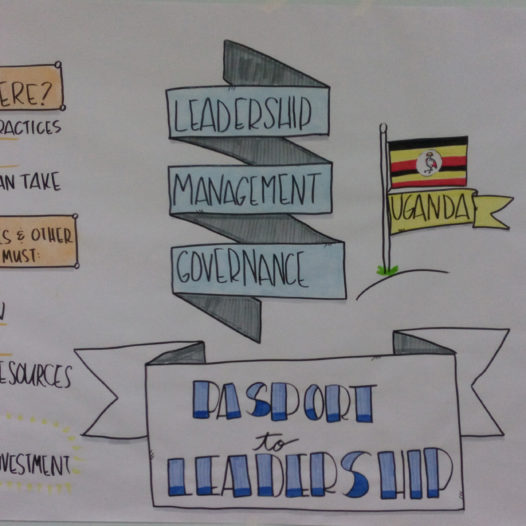 ERE?
RACTICES
AN TAKE
S & OTHER
MUST:
ESOURCES
VESTMENT
LEADERSHIP
MANAGEMENT
GOVERNANCE
UGANDA
PASPORT
to
LEADERSHIP